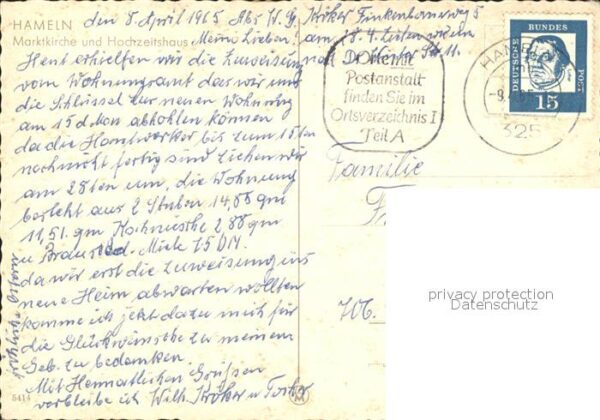 HAMELN
Marktkirche und Hochzeitshaus
den 8 April 1965 Abs W. Kröker Finkenbornerweg 5
Meine Lieben! am
Heut erhielten wir die Zuweisung
vom Wohnungsamt das wir uns
die Schlüssel zur neuen Wohnung
am 15 d. Mon abholen können
da die Handwerker bis zum 15ten
noch nicht fertig sind ziehen wir
am 28ten um, die Wohnung
besteht aus 2 Stuben 14,88 qm
11,51 qm Kochnische 2,88 qm
u Brausebad. Miete 75 DM.
da wir erst die Zuweisung ins
neue Heim abwarten wollten
komme ich jetzt dazu mich für
die Glückwünsche zu meinem
Geb. zu bedanken.
Mit Heimatlichen Grüßen
verbleibe ich Wilh. Kröker u Tochter
5414
Postanstalt
finden Sie im
Ortsverzeichnis I
Teil A
HAMELN
325
DEUTSCHE
BUNDES
POST
15
Familie
706.
privacy protection
Datenschutz